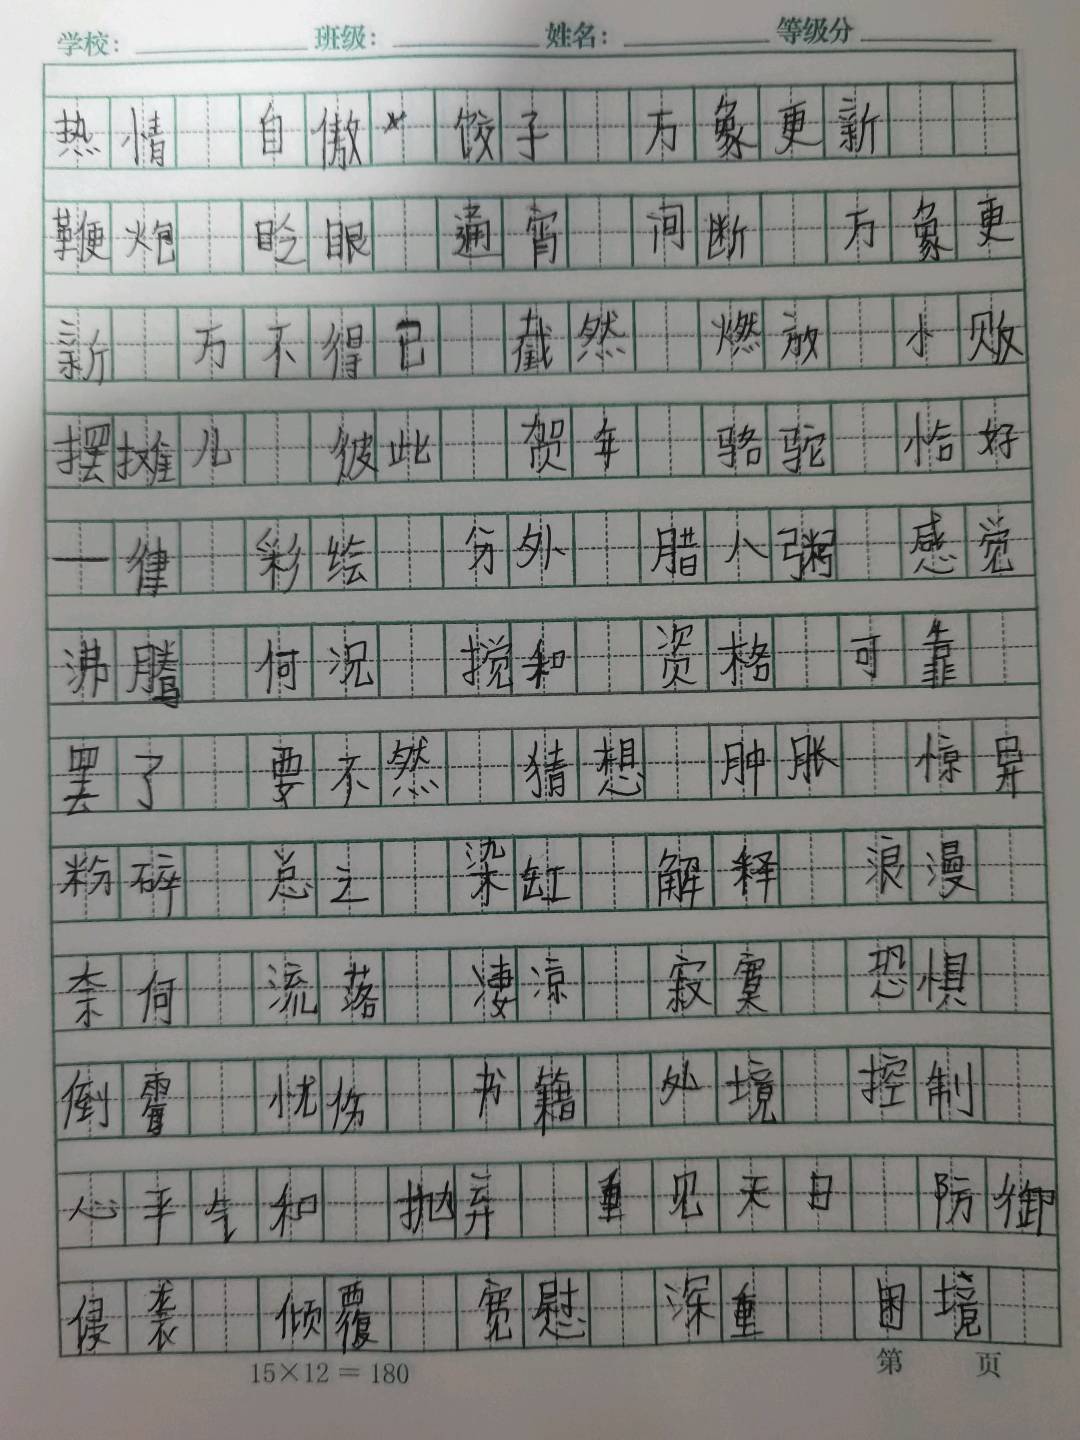 学校： 班级： 姓名： 等级分
热情 自傲 饺子 万象更新
鞭炮 眨眼 通宵 间断 万象更
新 万不得已 截然 燃放 小贩
摆摊儿 彼此 贺年 骆驼 恰好
一律 彩绘 分外 腊八粥 感觉
沸腾 何况 搅和 资格 可靠
罢了 要不然 猜想 肿胀 惊异
粉碎 总之 染缸 解释 浪漫
奈何 流落 凄凉 寂寞 恐惧
倒霉 忧伤 书籍 处境 控制
心平气和 抛弃 重见天日 防御
侵袭 倾覆 宽慰 深重 困境
15×12＝180 第 页